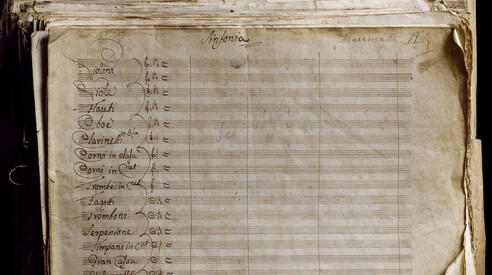 Sinfonia
Violini
Viole
Flauti
Oboè
Clarinetti
Corni in
Corni in Ut
Trombe in Ut
Fagotti
Tromboni
Serpentone
Timpani in Ut
Gran Cassa